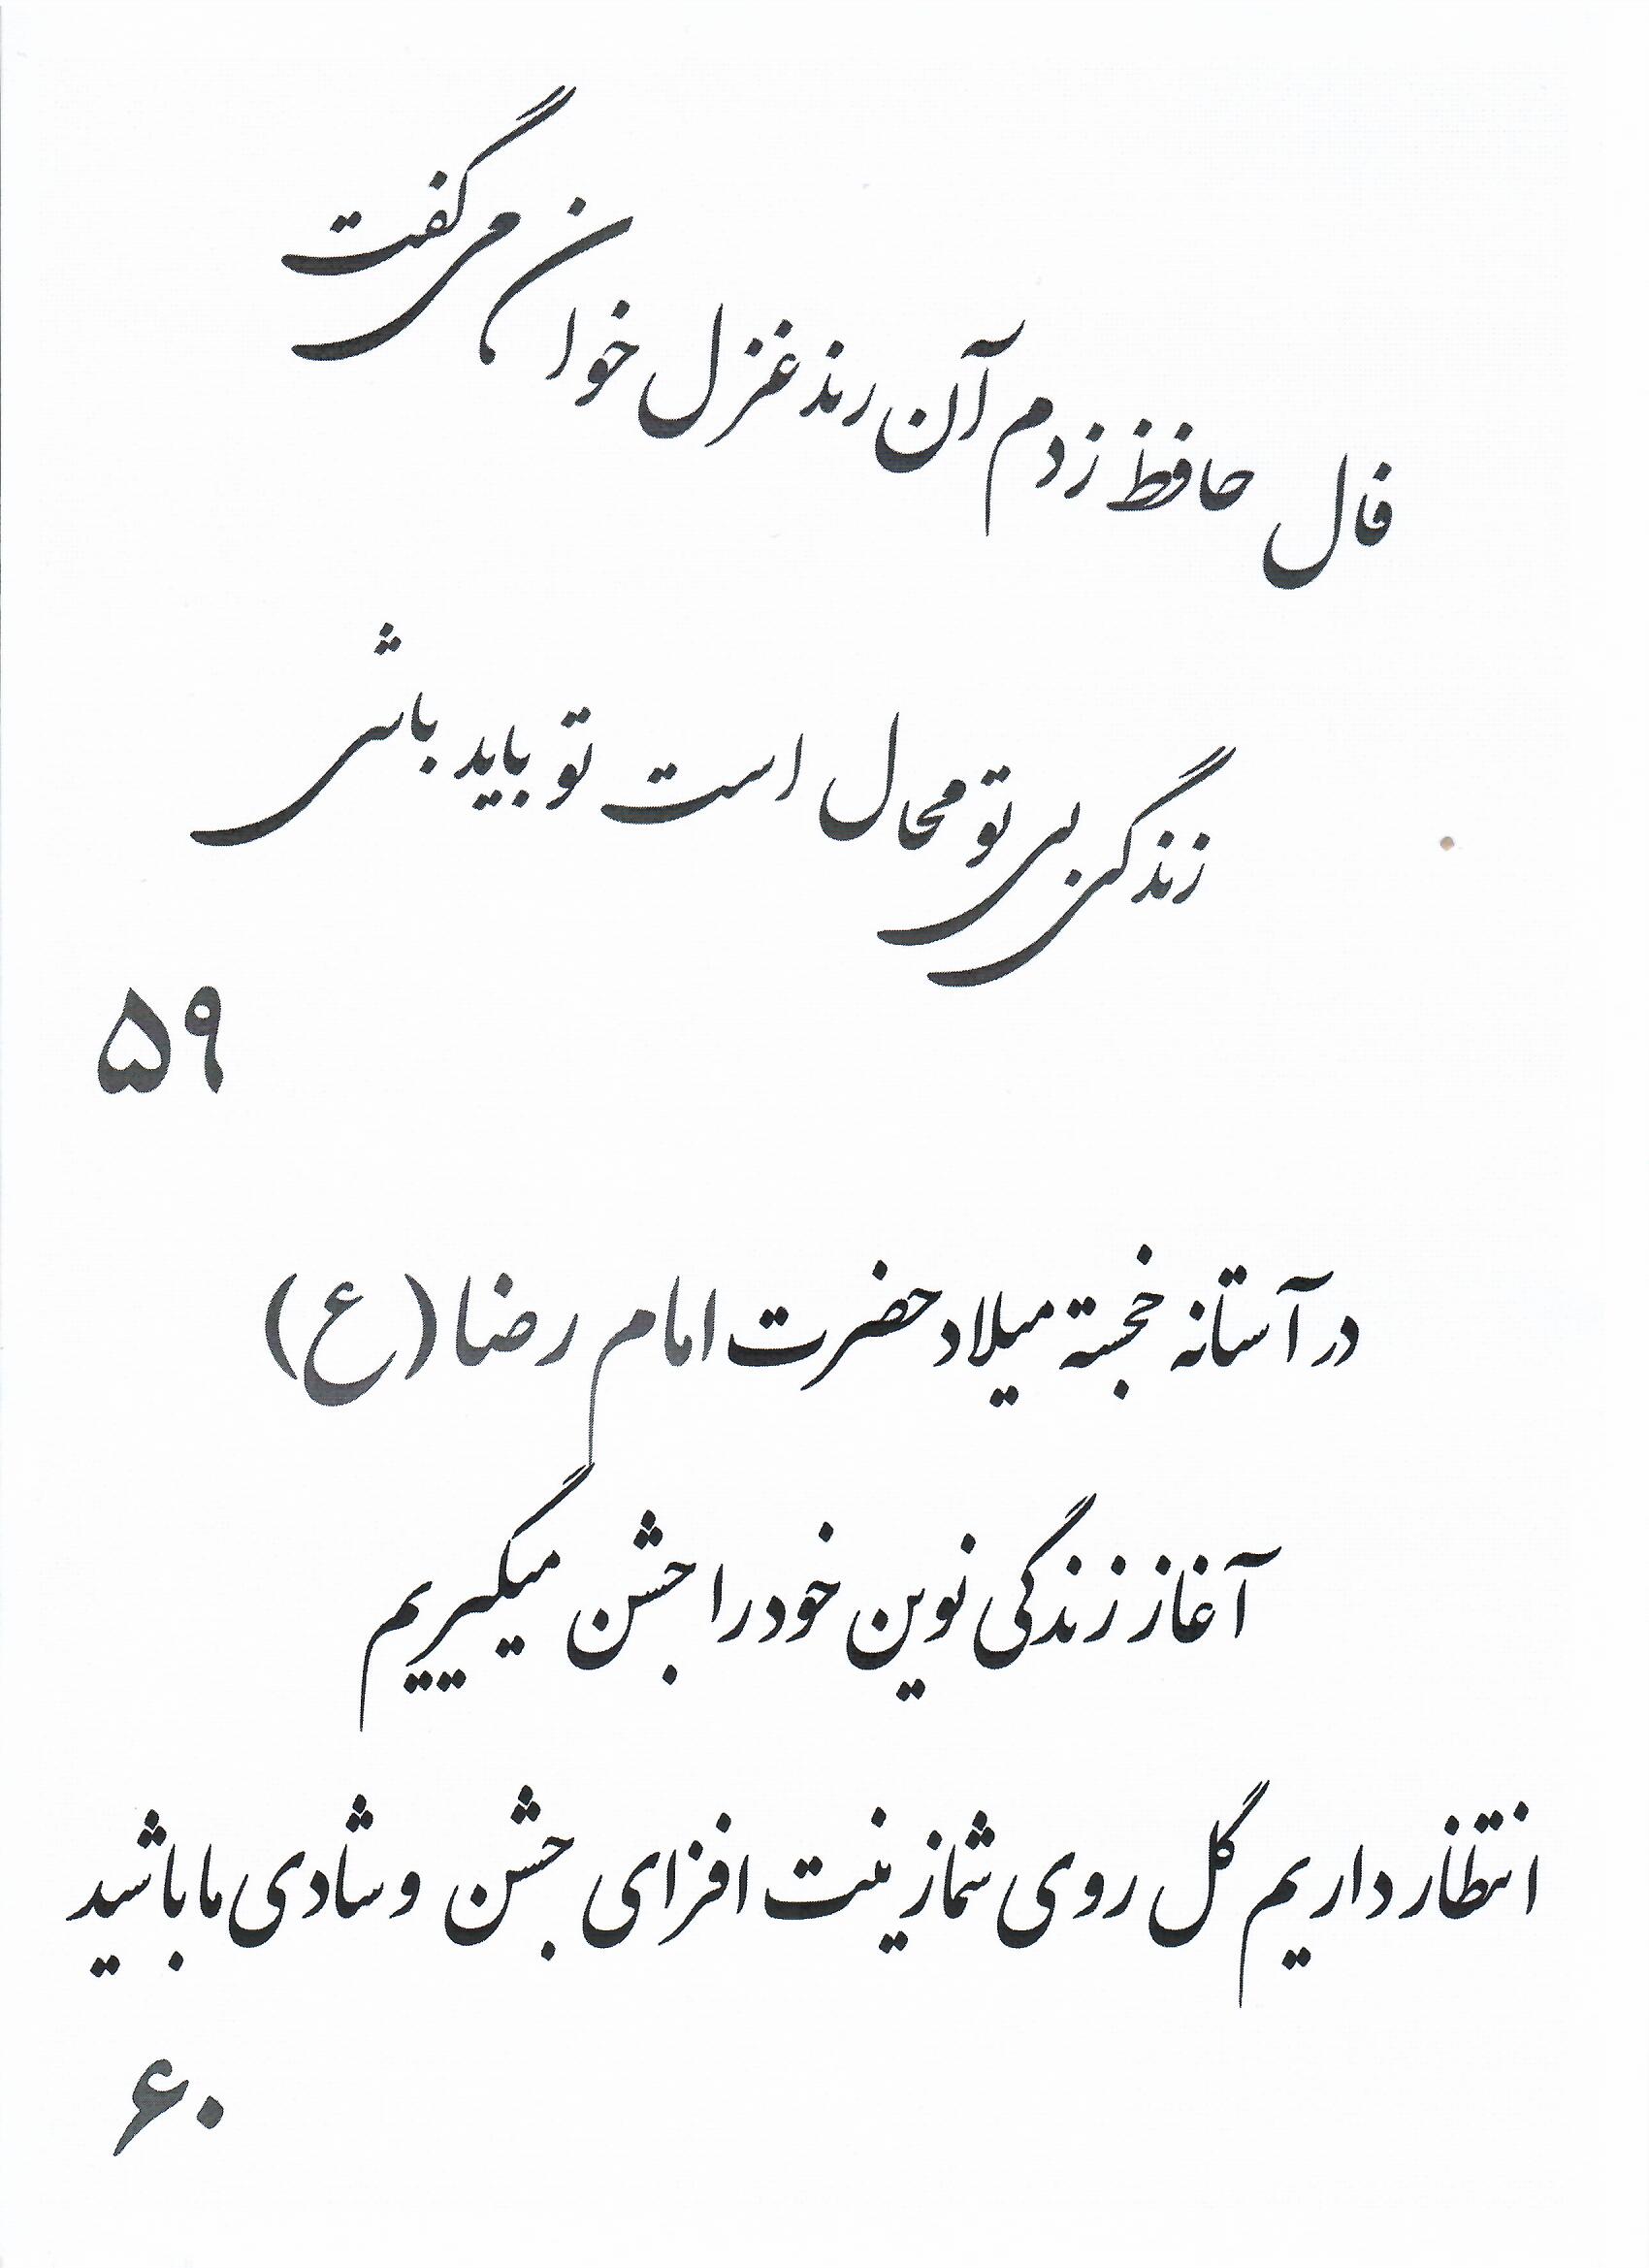 فال حافظ زدم آن رند غزل خوان می گفت
زندگی بی تو محال است تو باید باشی
۵۹
در آستانه خجسته میلاد حضرت امام رضا (ع)
آغاز زندگی نوین خود را جشن میگیریم
انتظار داریم گل روی شما زینت افزای جشن و شادی ما باشید
۶۰